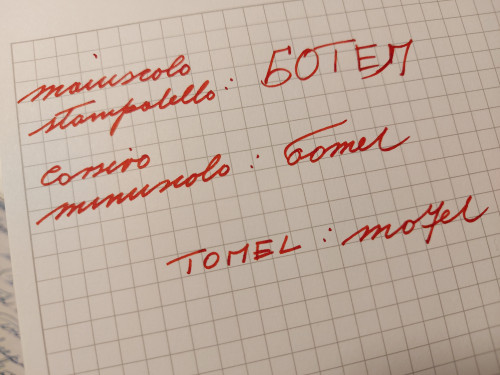 maiuscolo
stampatello: БОТЕЛ
corsivo
minuscolo: ботел
TOMEL : motel